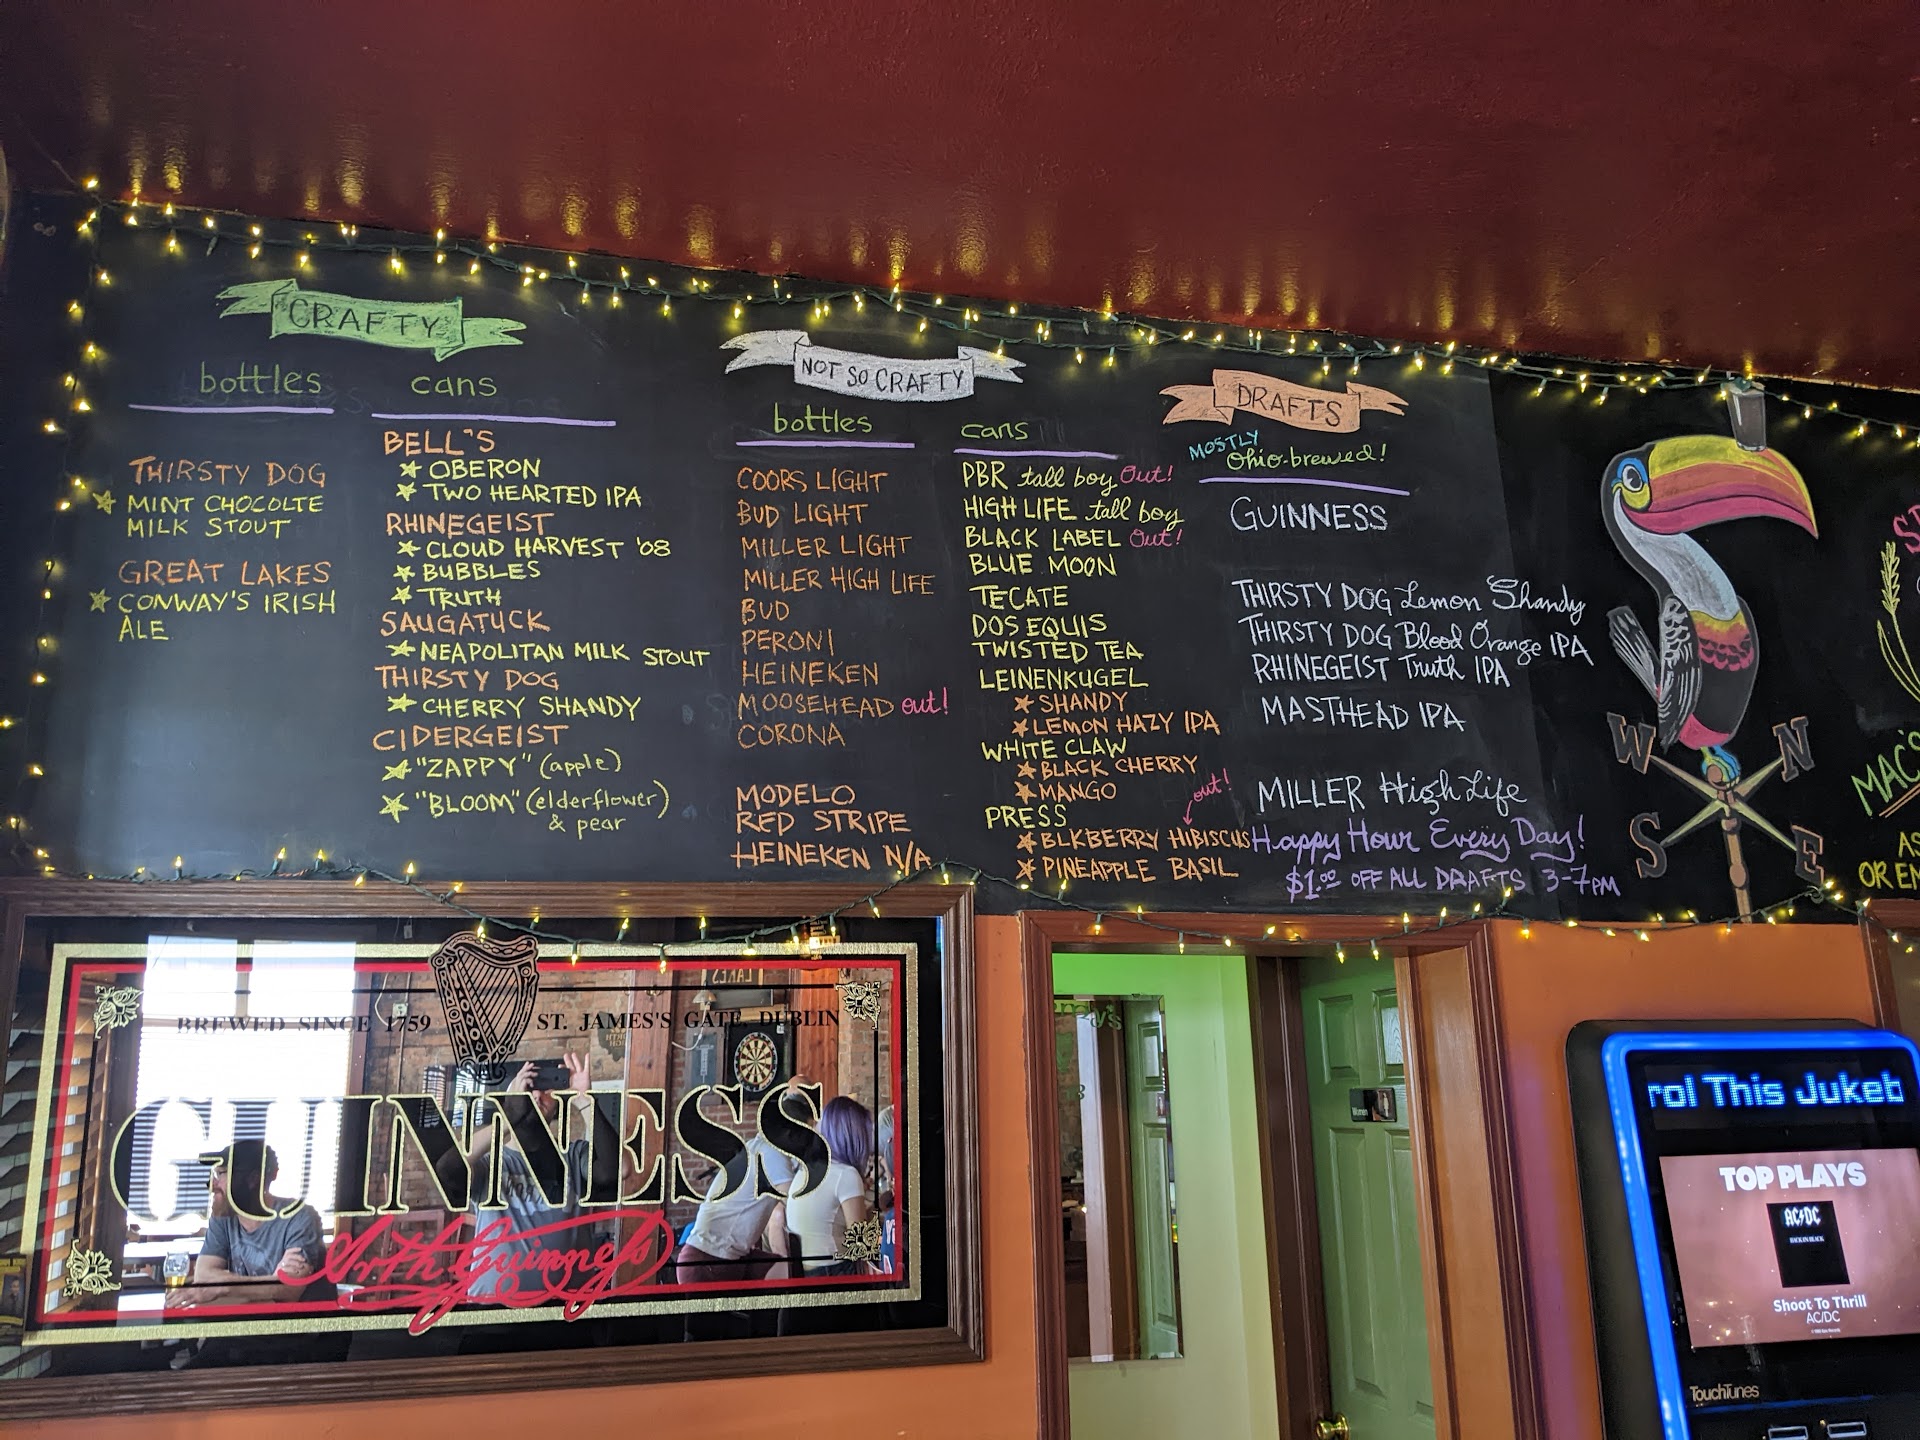 CRAFTY
bottles
THIRSTY DOG
MINT CHOCOLTE
MILK STOUT
GREAT LAKES
CONWAY'S IRISH
ALE
cans
BELL'S
OBERON
TWO HEARTED IPA
RHINEGEIST
CLOUD HARVEST '08
BUBBLES
TRUTH
SAUGATUCK
NEAPOLITAN MILK STOUT
THIRSTY DOG
CHERRY SHANDY
CIDERGEIST
"ZAPPY" (apple)
"BLOOM" (elderflower)
& pear
NOT SO CRAFTY
bottles
COORS LIGHT
BUD LIGHT
MILLER LIGHT
MILLER HIGH LIFE
BUD
PERONI
HEINEKEN
MOOSEHEAD out!
CORONA
MODELO
RED STRIPE
HEINEKEN N/A
cans
PBR tall boy Out!
HIGH LIFE tall boy
BLACK LABEL Out!
BLUE MOON
TECATE
DOS EQUIS
TWISTED TEA
LEINENKUGEL
SHANDY
LEMON HAZY IPA
WHITE CLAW
BLACK CHERRY
MANGO
out!
PRESS
BLKBERRY HIBISCUS
PINEAPPLE BASIL
DRAFTS
MOSTLY
Ohio-brewed!
GUINNESS
THIRSTY DOG Lemon Shandy
THIRSTY DOG Blood Orange IPA
RHINEGEIST Truth IPA
MASTHEAD IPA
MILLER High Life
Happy Hour Every Day!
$1.00 OFF ALL DRAFTS 3-7PM
W N
S E
MAC'S
AS
OR EM
BREWED SINCE 1759
ST. JAMES'S GATE, DUBLIN
GUINNESS
Arth Guinness
Women
rol This Jukeb
TOP PLAYS
AC/DC
BACK IN BLACK
Shoot To Thrill
AC/DC
TouchTunes